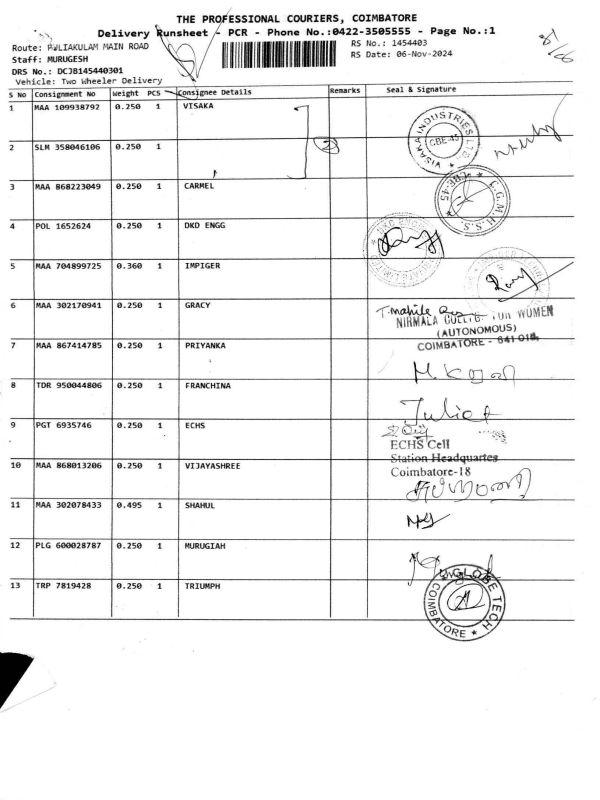 THE PROFESSIONAL COURIERS, COIMBATORE
Delivery Runsheet - PCR - Phone No.:0422-3505555 - Page No.:1
Route: PULIAKULAM MAIN ROAD
RS No.: 1454403
Staff: MURUGESH
RS Date: 06-Nov-2024
DRS No.: DCJB145440301
Vehicle: Two Wheeler Delivery
S No Consignment No Weight PCS Consignee Details Remarks Seal & Signature
1 MAA 109938792 0.250 1 VISAKA
VISAKA INDUSTRIES LTD CBE-45
2 SLM 358046106 0.250 1
2
3 MAA 868223049 0.250 1 CARMEL
C.G.M.H.S.S CBE-45
4 POL 1652624 0.250 1 DKD ENGG
5 MAA 704899725 0.360 1 IMPIGER
6 MAA 302170941 0.250 1 GRACY
NIRMALA COLLEGE FOR WOMEN
(AUTONOMOUS)
COIMBATORE - 641 018.
7 MAA 867414785 0.250 1 PRIYANKA
8 TDR 950044806 0.250 1 FRANCHINA
Juliet
9 PGT 6935746 0.250 1 ECHS
ECHS Cell
Station Headquartes
Coimbatore-18
10 MAA 868013206 0.250 1 VIJAYASHREE
11 MAA 302078433 0.495 1 SHAHUL
12 PLG 600028787 0.250 1 MURUGIAH
13 TRP 7819428 0.250 1 TRIUMPH
GLOBE TECH
COIMBATORE